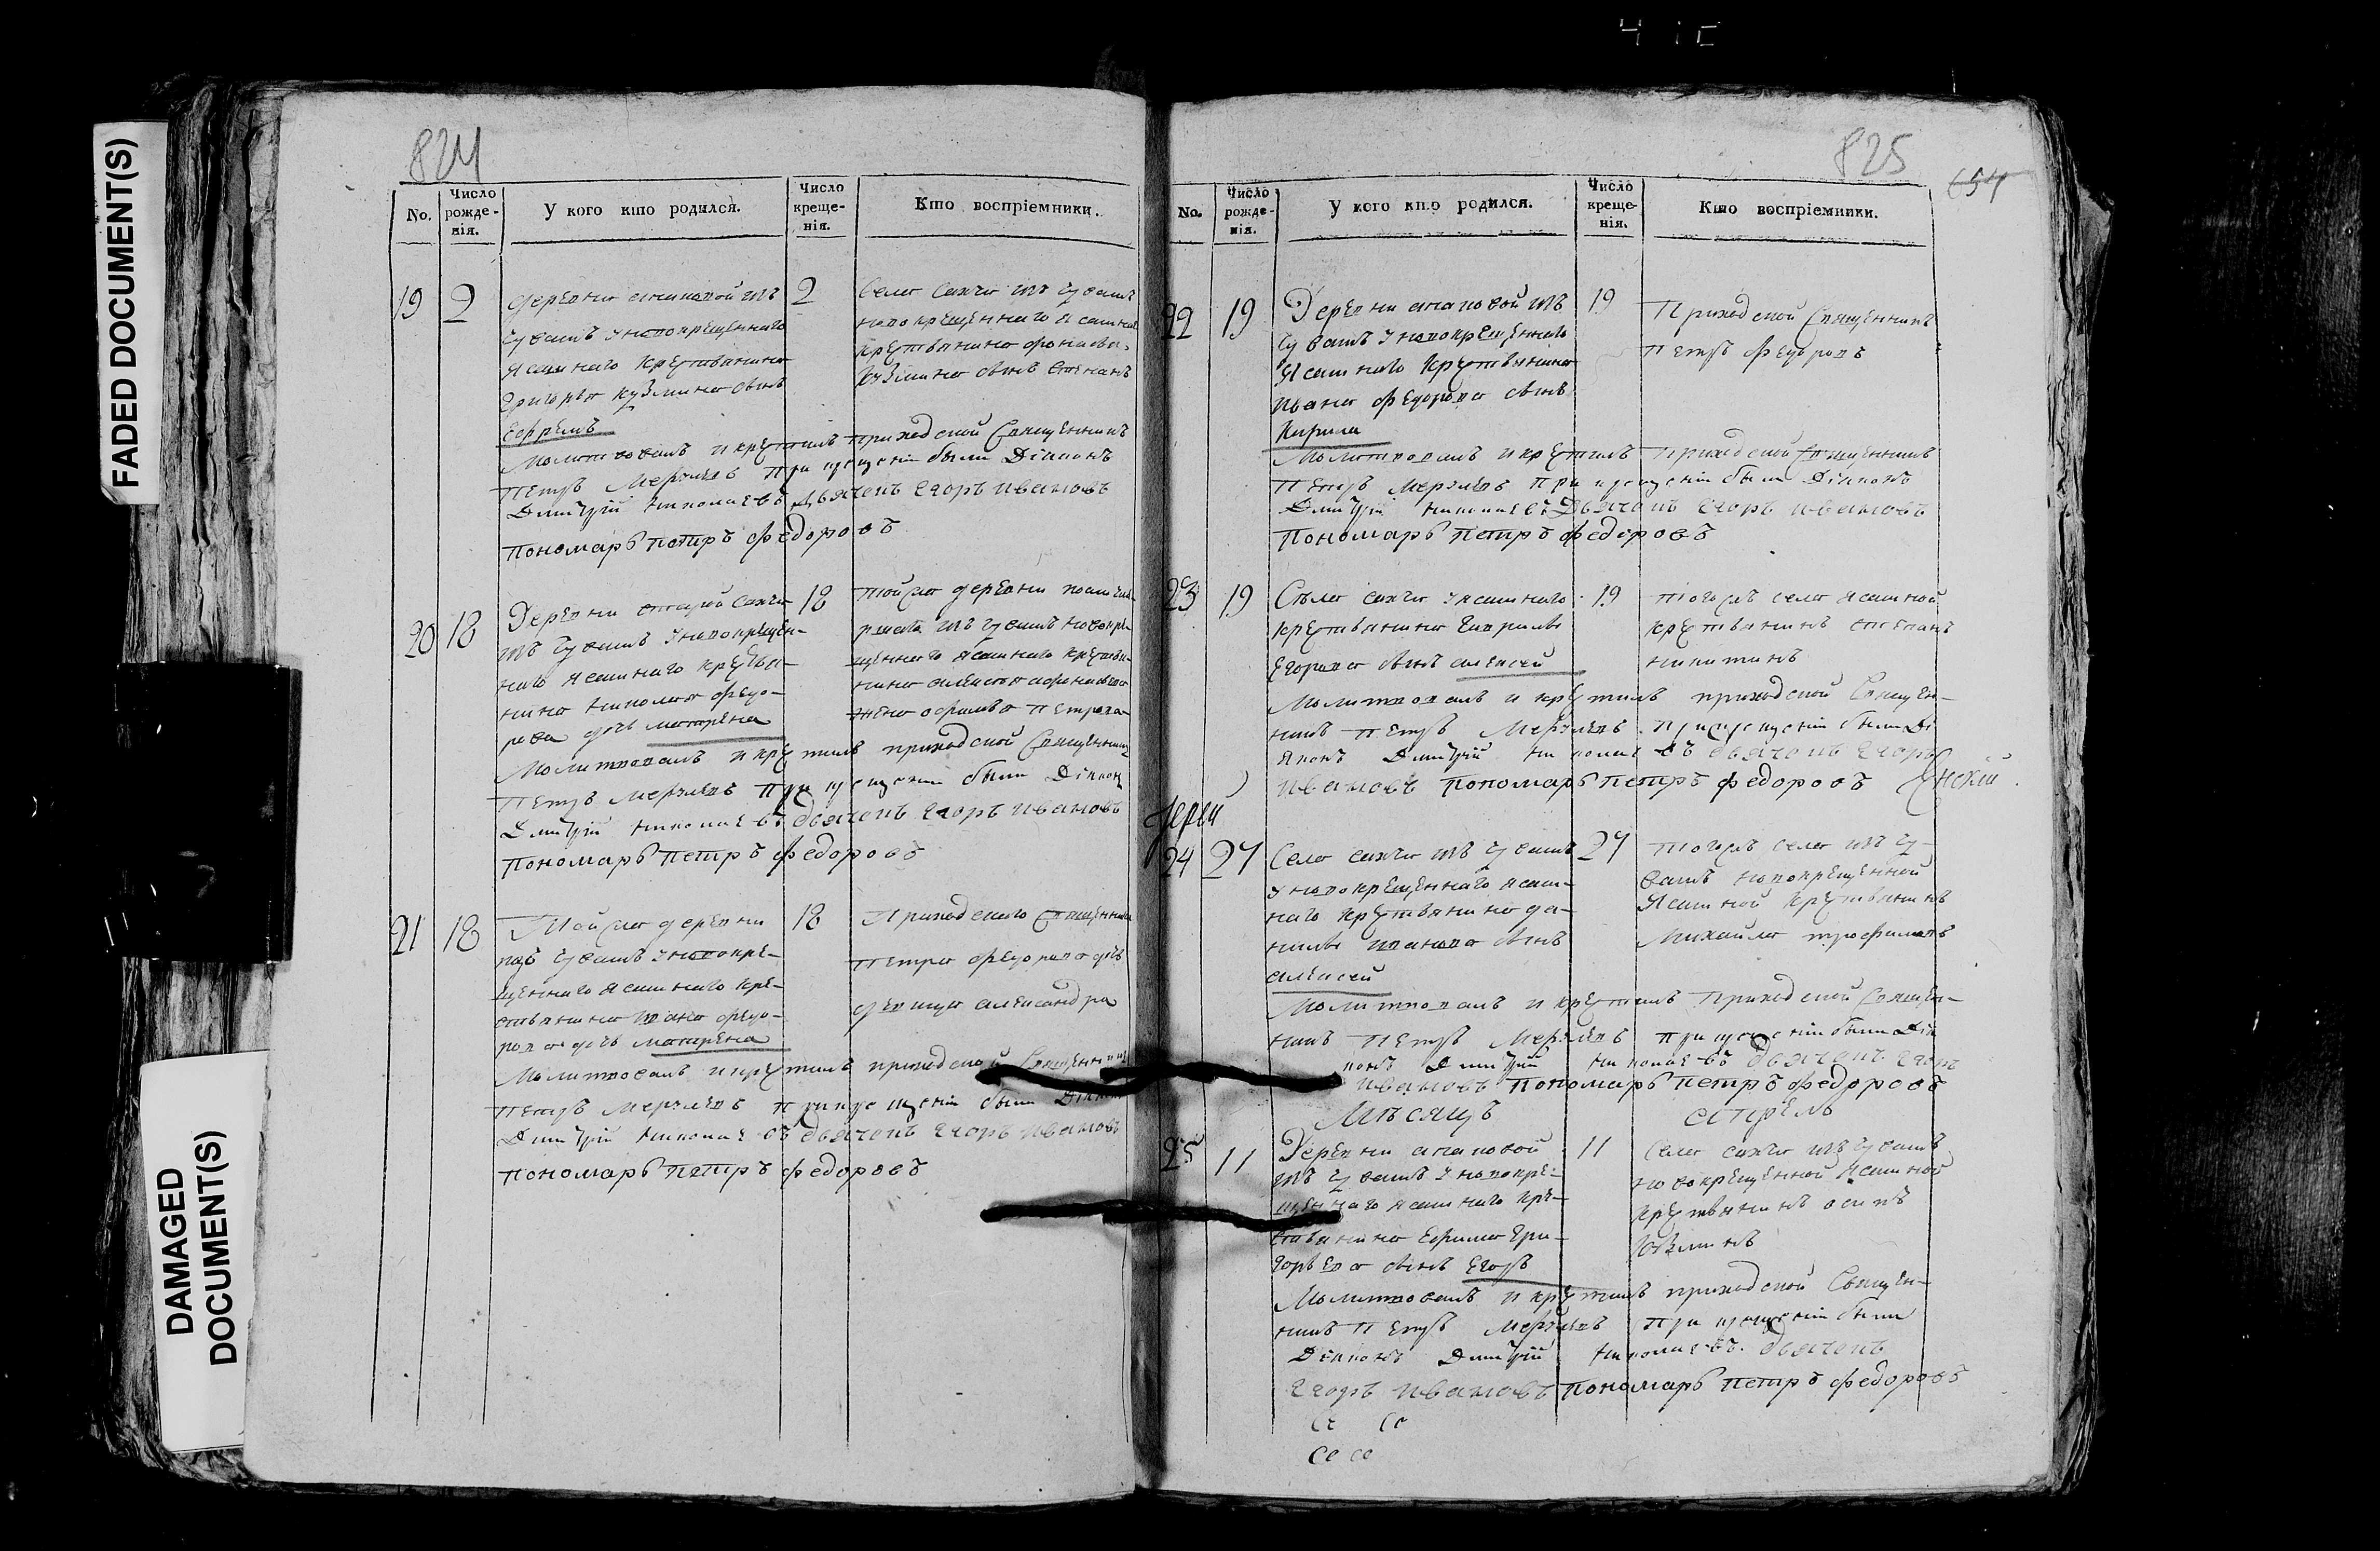 FADED DOCUMENT(S)
DAMAGED
DOCUMENT(S)
824
No.
Число
рожде-
нія.
У кого кто родился.
Число
креще-
нія.
Кто воспріемники.
19
2
деревни
чувашъ у новокрещеннаго
Ясашнаго крестьянина
Григорья Кузмина сынъ
Ефремъ
2
Села чувашъ
новокрещеннаго Ясашнаго
крестьянина
Кузмина сынъ Степанъ
Молитвовалъ и крестилъ приходской Священникъ
Петръ При были Діяконъ
Дмитрій Николаевъ дьячекъ Егоръ Ивановъ
пономарь петръ федоровъ
20
18
Деревни старой
изъ чувашъ у новокрещен-
наго Ясашнаго крестья-
нина Николая Федо-
рова дочь матрена
18
тойже деревни
изъ чувашъ новокре-
щеннаго Ясашнаго крестья-
нина алексея
жена Петрова
Молитвовалъ и крестилъ приходской Священникъ
Петръ При были Діяконъ
Дмитрій Николаевъ дьячекъ Егоръ Ивановъ
пономарь петръ федоровъ
21
18
Тойже деревни
изъ чувашъ у новокре-
щеннаго Ясашнаго кре-
стьянина Ивана Федо-
рова дочь матрена
18
Приходскаго Священника
Петра Федорова дочь
девица александра
Молитвовалъ и крестилъ приходской Священникъ
Петръ При были Діяконъ
Дмитрій Николаевъ дьячекъ Егоръ Ивановъ
пономарь петръ федоровъ
825
No.
Число
рожде-
нія.
У кого кто родился.
Число
креще-
нія.
Кто воспріемники.
22
19
Деревни изъ
чувашъ у новокрещеннаго
Ясашнаго крестьянина
Ивана Федорова сынъ
Кирила
19
Приходской Священникъ
Петръ Федоровъ
Молитвовалъ и крестилъ приходской Священникъ
Петръ При были Діяконъ
Дмитрій Николаевъ Дьячекъ Егоръ Ивановъ
Пономарь петръ федоровъ
23
19
Села у Ясашнаго
крестьянина Гаврилы
Егорова сынъ алексей
19
тогожъ села Ясашной
крестьянинъ степанъ
никитинъ
Молитвовалъ и крестилъ приходской Священ-
никъ Петръ При были Ді
яконъ Дмитрій Николаевъ дьячекъ Егоръ
Ивановъ пономарь петръ федоровъ
Іерей
24
27
Села изъ чувашъ
у новокрещеннаго Ясаш-
наго крестьянина Да-
нилы Иванова сынъ
алексей
27
тогожъ села изъ чу-
вашъ новокрещенной
Ясашной крестьянинъ
Михайла трофимовъ
Молитвовалъ и крестилъ приходской Священ-
никъ Петръ При были Дія
конъ Дмитрій Николаевъ дьячекъ Егоръ
Ивановъ пономарь петръ федоровъ
Мѣсяцъ апрель
25
11
Деревни
изъ чувашъ у новокре-
щеннаго Ясашнаго кре-
стьянина Ефима Гри-
горьева сынъ Егоръ
11
Села изъ чувашъ
новокрещенной Ясашной
крестьянинъ осипъ
Кузминъ
Молитвовалъ и крестилъ приходской Священ-
никъ Петръ При были
Діяконъ Дмитрій Николаевъ дьячекъ
Егоръ Ивановъ пономарь петръ федоровъ